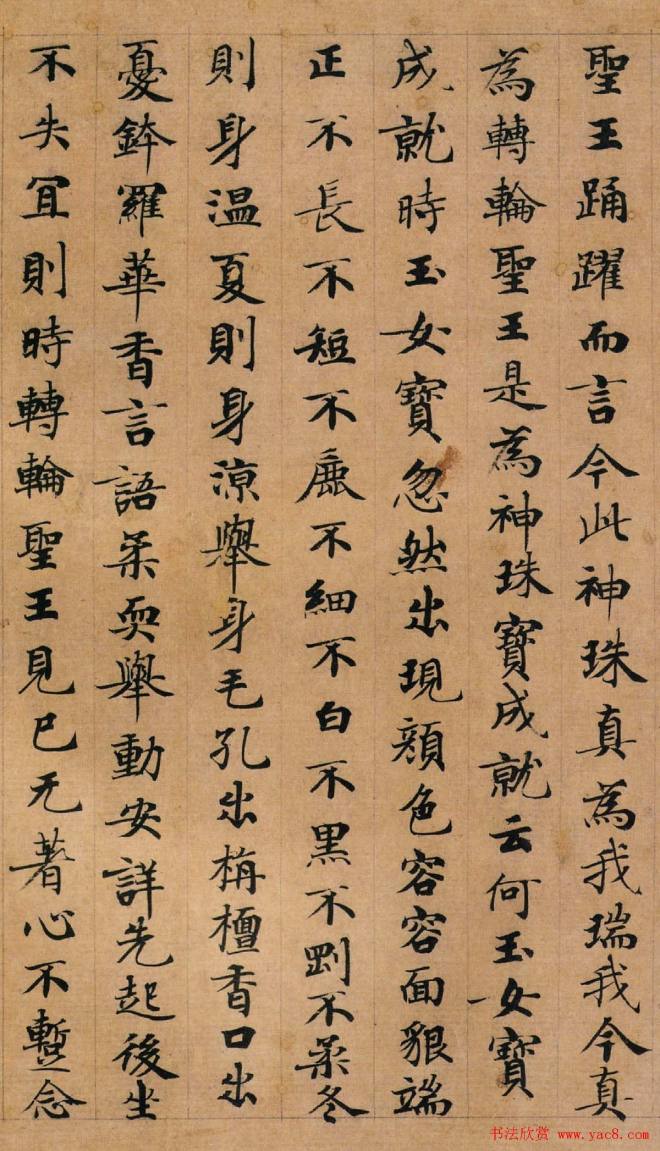 聖王踊躍而言今此神珠真為我瑞我今真
為轉輪聖王是為神珠寶成就云何玉女寶
成就時玉女寶忽然出現顏色容容面貇端
正不長不短不麁不細不白不黑不剛不柔冬
則身温夏則身涼舉身毛孔出栴檀香口出
憂鉢羅華香言語柔耎舉動安詳先起後坐
不失冝則時轉輪聖王見已无著心不蹔念
书法欣赏 www.yac8.com